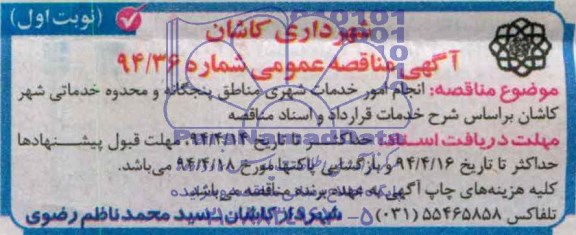 (نوبت اول)
شهرداری کاشان
آگهی مناقصه عمومی شماره ۹۴/۳۶
موضوع مناقصه: انجام امور خدمات شهری مناطق پنجگانه و محدوه خدماتی شهر
کاشان براساس شرح خدمات قرارداد و اسناد مناقصه
مهلت دریافت اسناد: حداکثر تا تاریخ ۹۴/۴/۱۴. مهلت قبول پیشنهادها
حداکثر تا تاریخ ۹۴/۴/۱۶ و بازگشایی پاکتها مورخ ۹۴/۴/۱۸ می‌باشد.
کلیه هزینه‌های چاپ آگهی به عهده برنده مناقصه می‌باشد.
تلفاکس ۵۵۴۶۵۸۵۸ (۰۳۱) شهردار کاشان - سید محمد ناظم رضوی